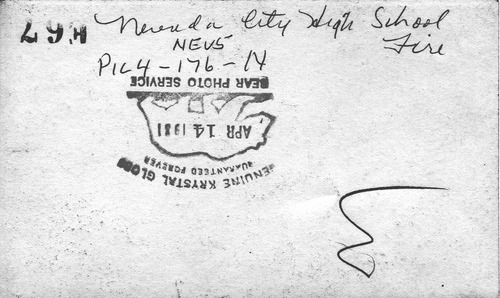 Nevada City High School
Fire
NEVS
Pic 4-176-N
GENUINE KRYSTAL GLOSS
GUARANTEED FOREVER
APR 14 1931
BEAR PHOTO SERVICE